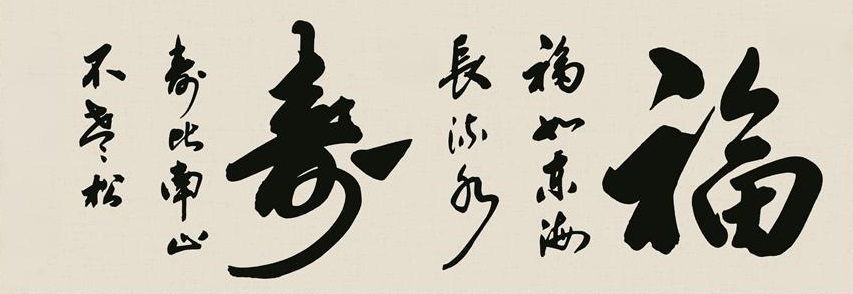 福
福如東海
長流水
壽
寿比南山
不老松